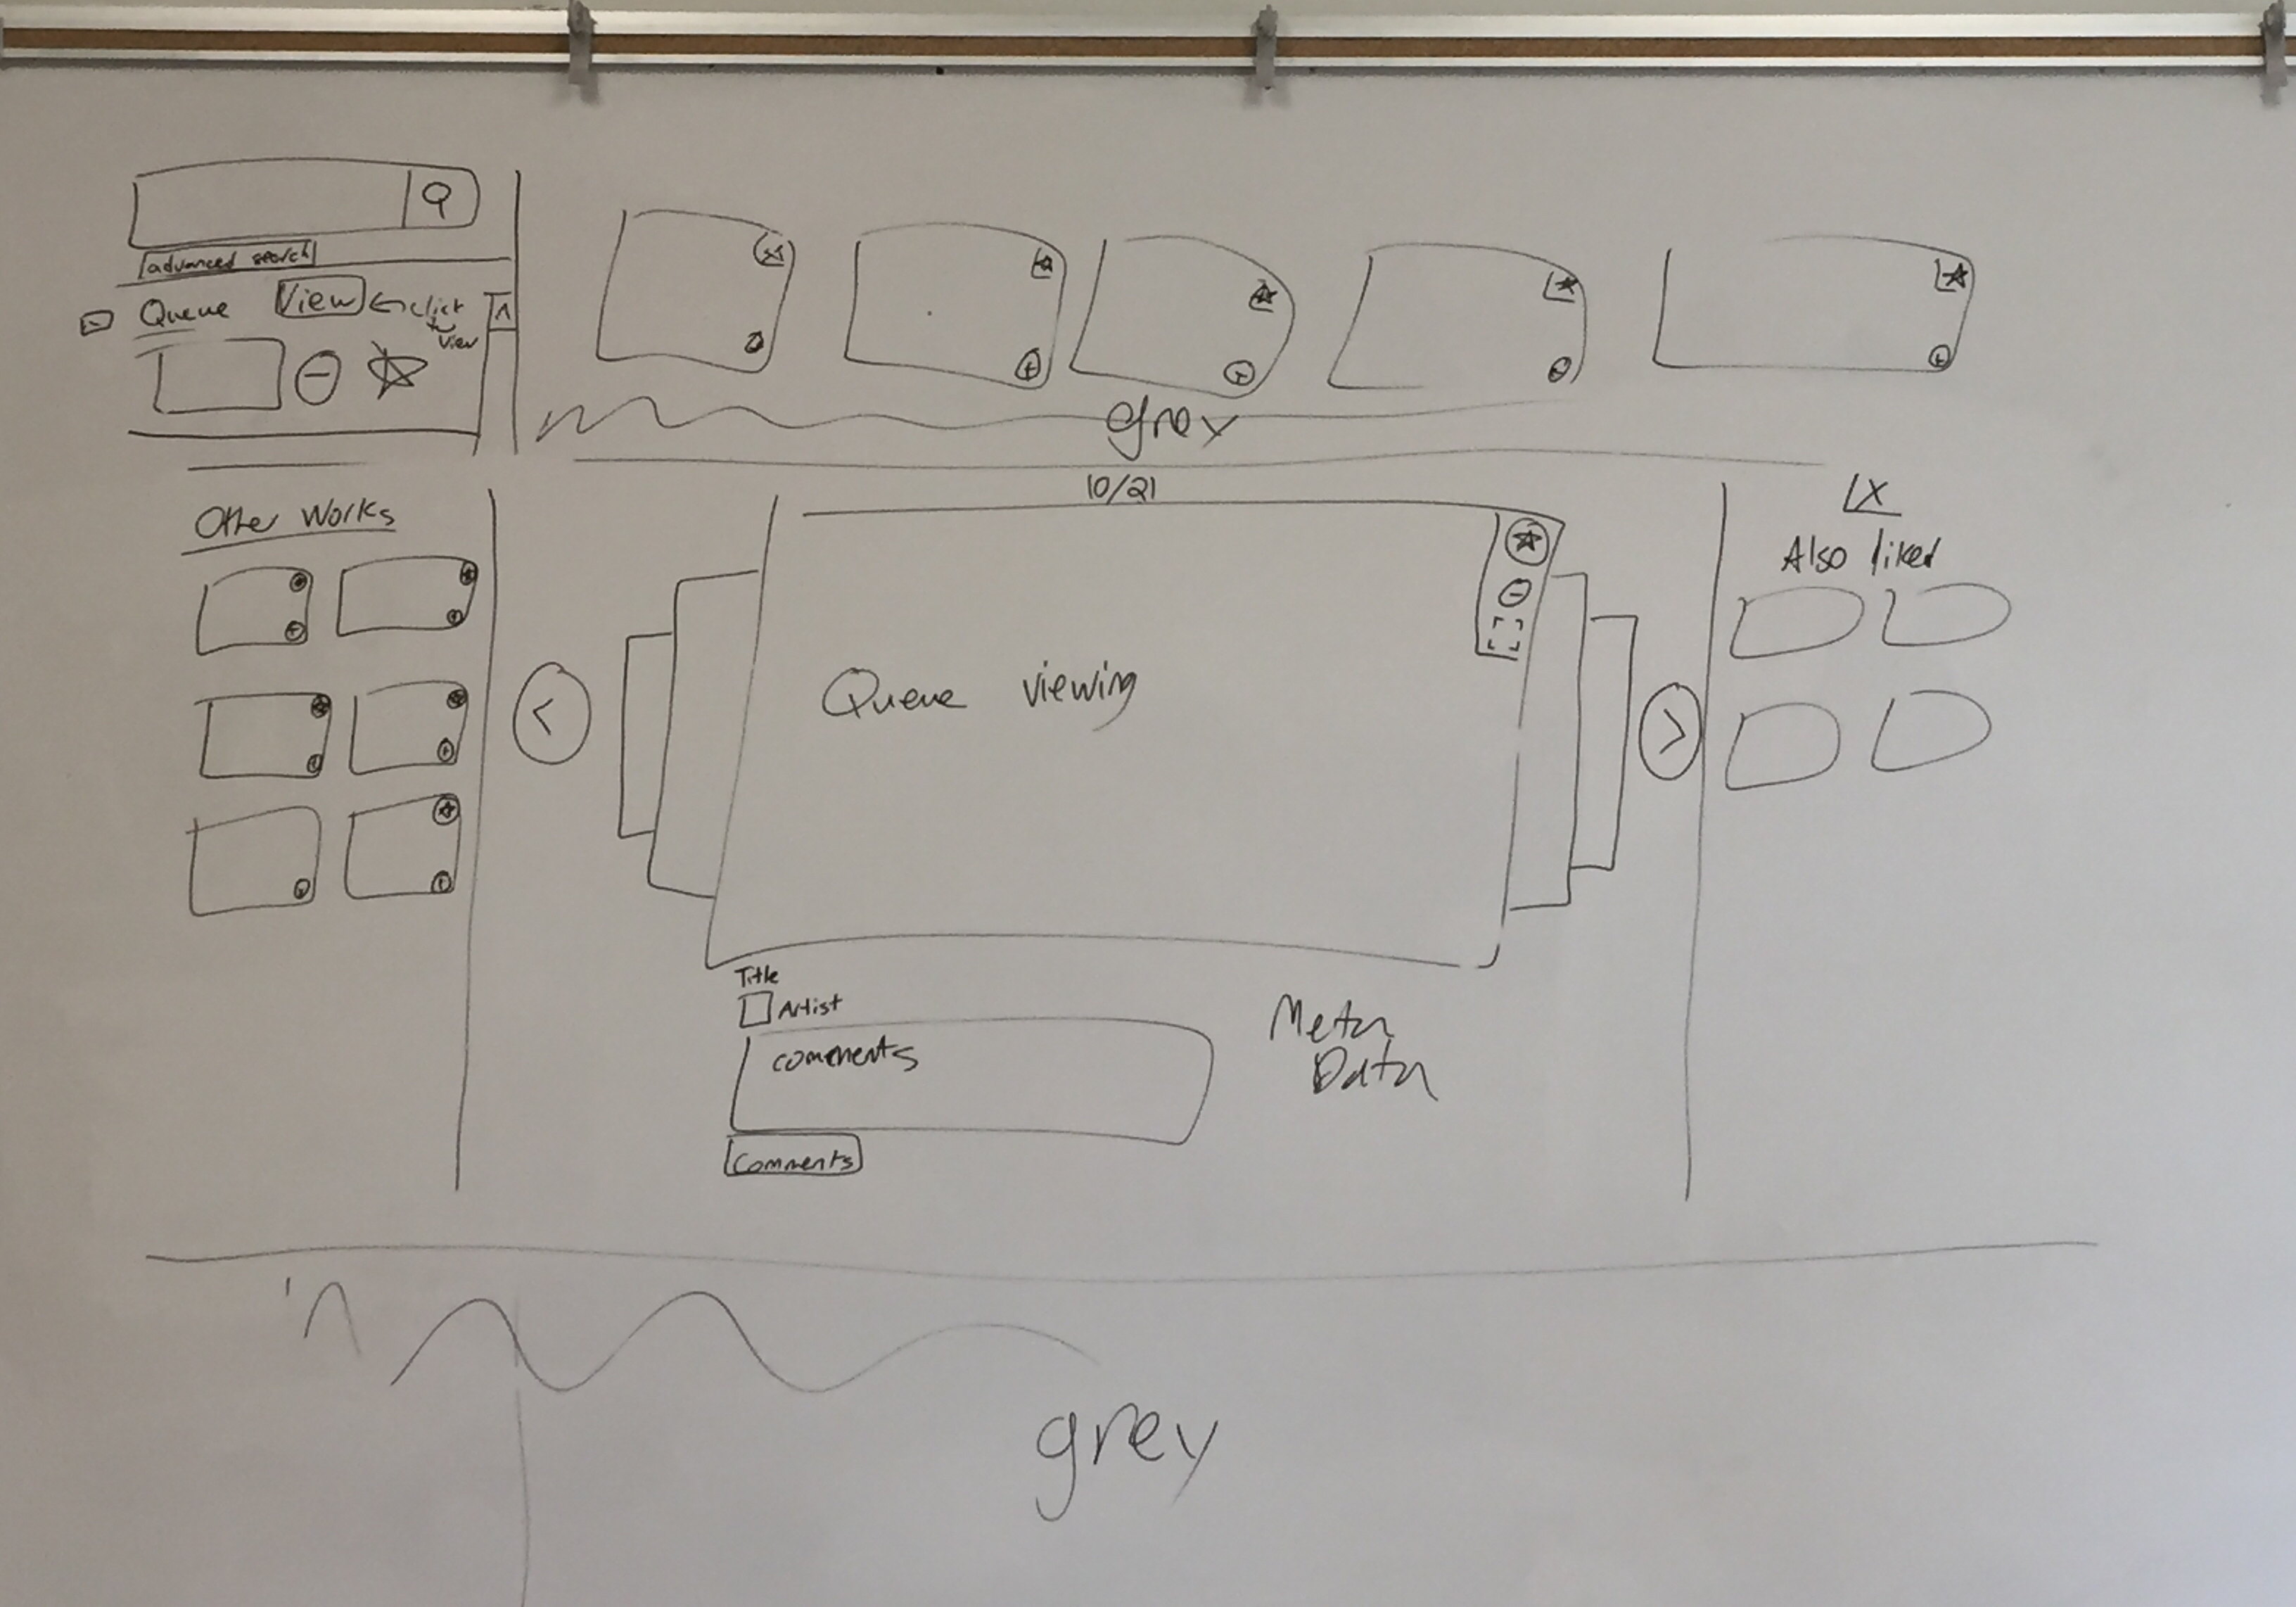 advanced search
Queue View ← click
to
View
grey
10/21
Other Works
X
Also liked
Queue viewing
Title
Artist
comments
Comments
Meta
Data
grey